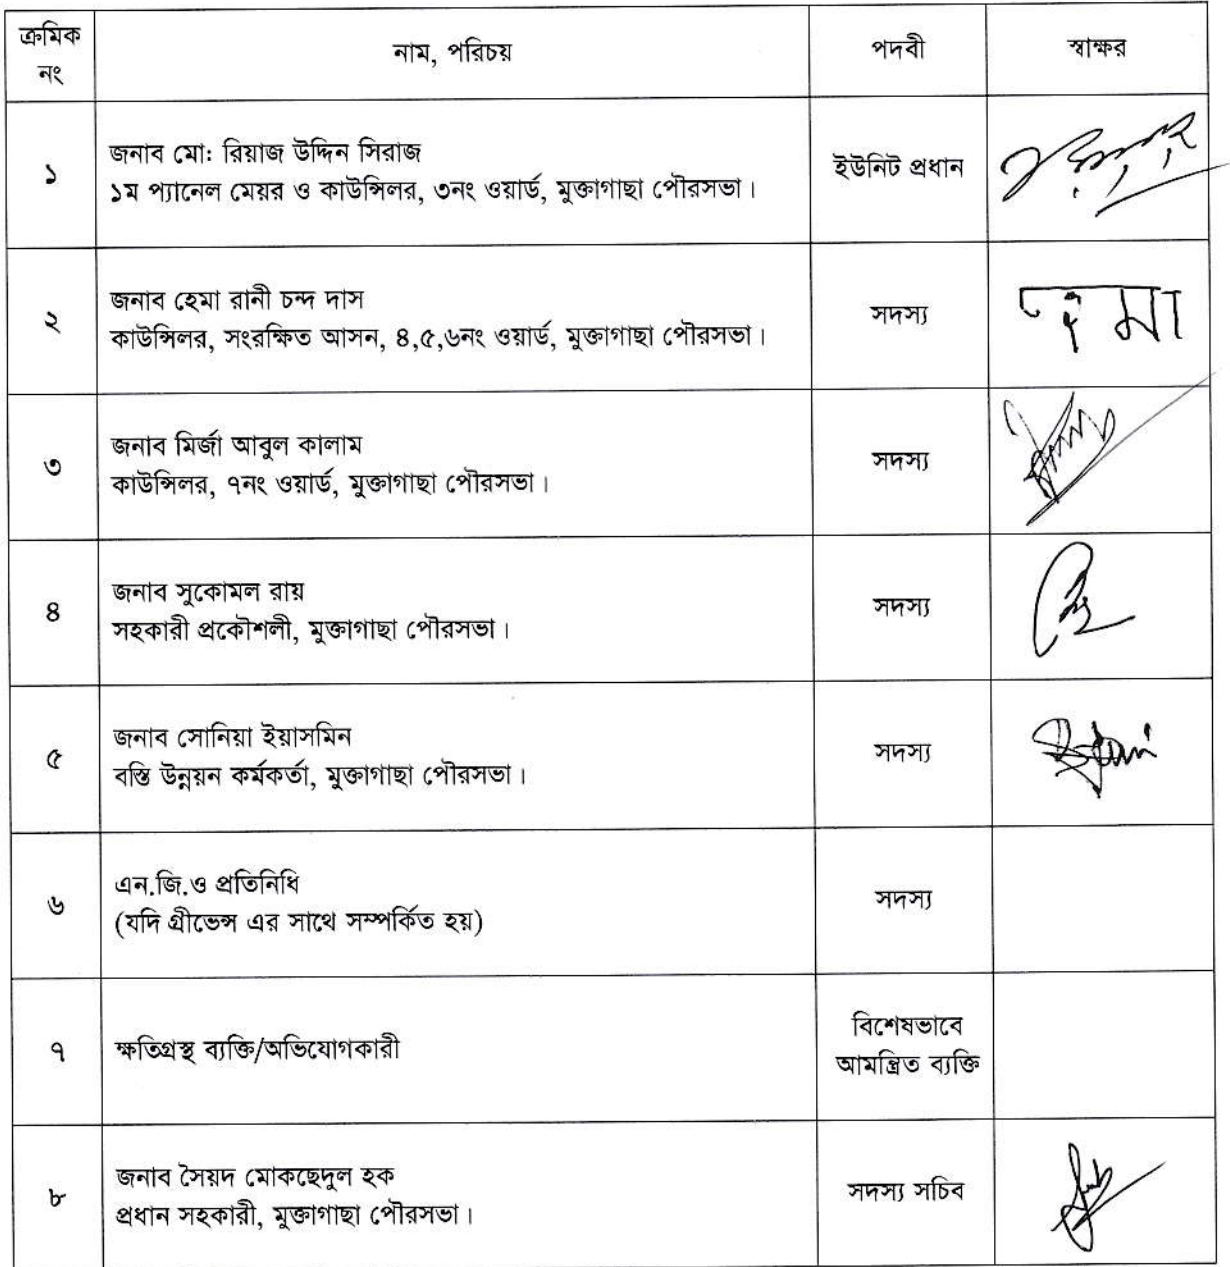 ক্রমিক নং
নাম, পরিচয়
পদবী
স্বাক্ষর
১
জনাব মো: রিয়াজ উদ্দিন সিরাজ
১ম প্যানেল মেয়র ও কাউন্সিলর, ৩নং ওয়ার্ড, মুক্তাগাছা পৌরসভা।
ইউনিট প্রধান
২
জনাব হেমা রানী চন্দ দাস
কাউন্সিলর, সংরক্ষিত আসন, ৪,৫,৬নং ওয়ার্ড, মুক্তাগাছা পৌরসভা।
সদস্য
৩
জনাব মির্জা আবুল কালাম
কাউন্সিলর, ৭নং ওয়ার্ড, মুক্তাগাছা পৌরসভা।
সদস্য
৪
জনাব সুকোমল রায়
সহকারী প্রকৌশলী, মুক্তাগাছা পৌরসভা।
সদস্য
৫
জনাব সোনিয়া ইয়াসমিন
বস্তি উন্নয়ন কর্মকর্তা, মুক্তাগাছা পৌরসভা।
সদস্য
৬
এন.জি.ও প্রতিনিধি
(যদি গ্রীভেন্স এর সাথে সম্পর্কিত হয়)
সদস্য
৭
ক্ষতিগ্রস্থ ব্যক্তি/অভিযোগকারী
বিশেষভাবে
আমন্ত্রিত ব্যক্তি
৮
জনাব সৈয়দ মোকছেদুল হক
প্রধান সহকারী, মুক্তাগাছা পৌরসভা।
সদস্য সচিব